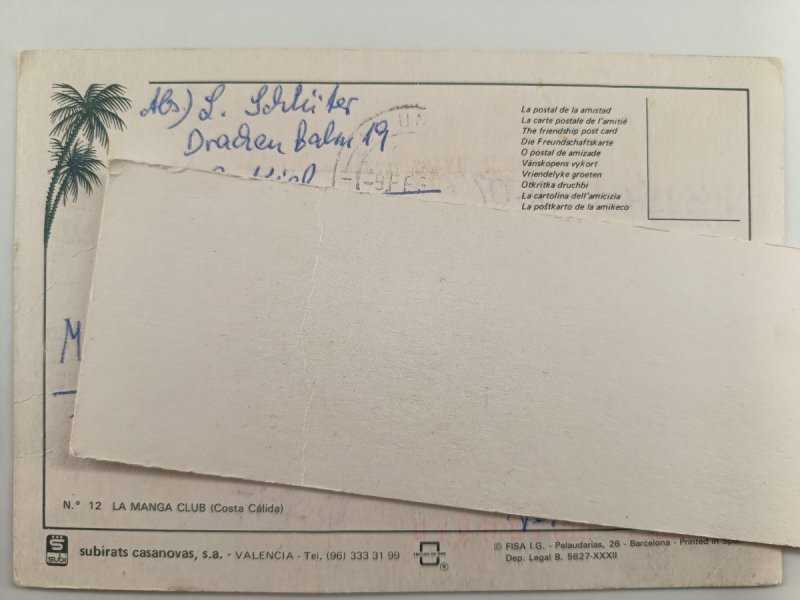 Abs) L. Schlüter
Drachenbahn 19
Kiel
La postal de la amistad
La carte postale de l'amitié
The friendship post card
Die Freundschaftskarte
O postal de amizade
Vänskopens vykort
Vriendelyke groeten
Otkritka druchbi
La cartolina dell'amicizia
La poŝtkarto de la amikeco
M
N.° 12 LA MANGA CLUB (Costa Cálida)
S
subi
subirats casanovas, s.a. - VALENCIA - Tel. (96) 333 31 99
®
© FISA I.G. - Palaudarias, 26 - Barcelona - Printed in
Dep. Legal B. 5627-XXXII